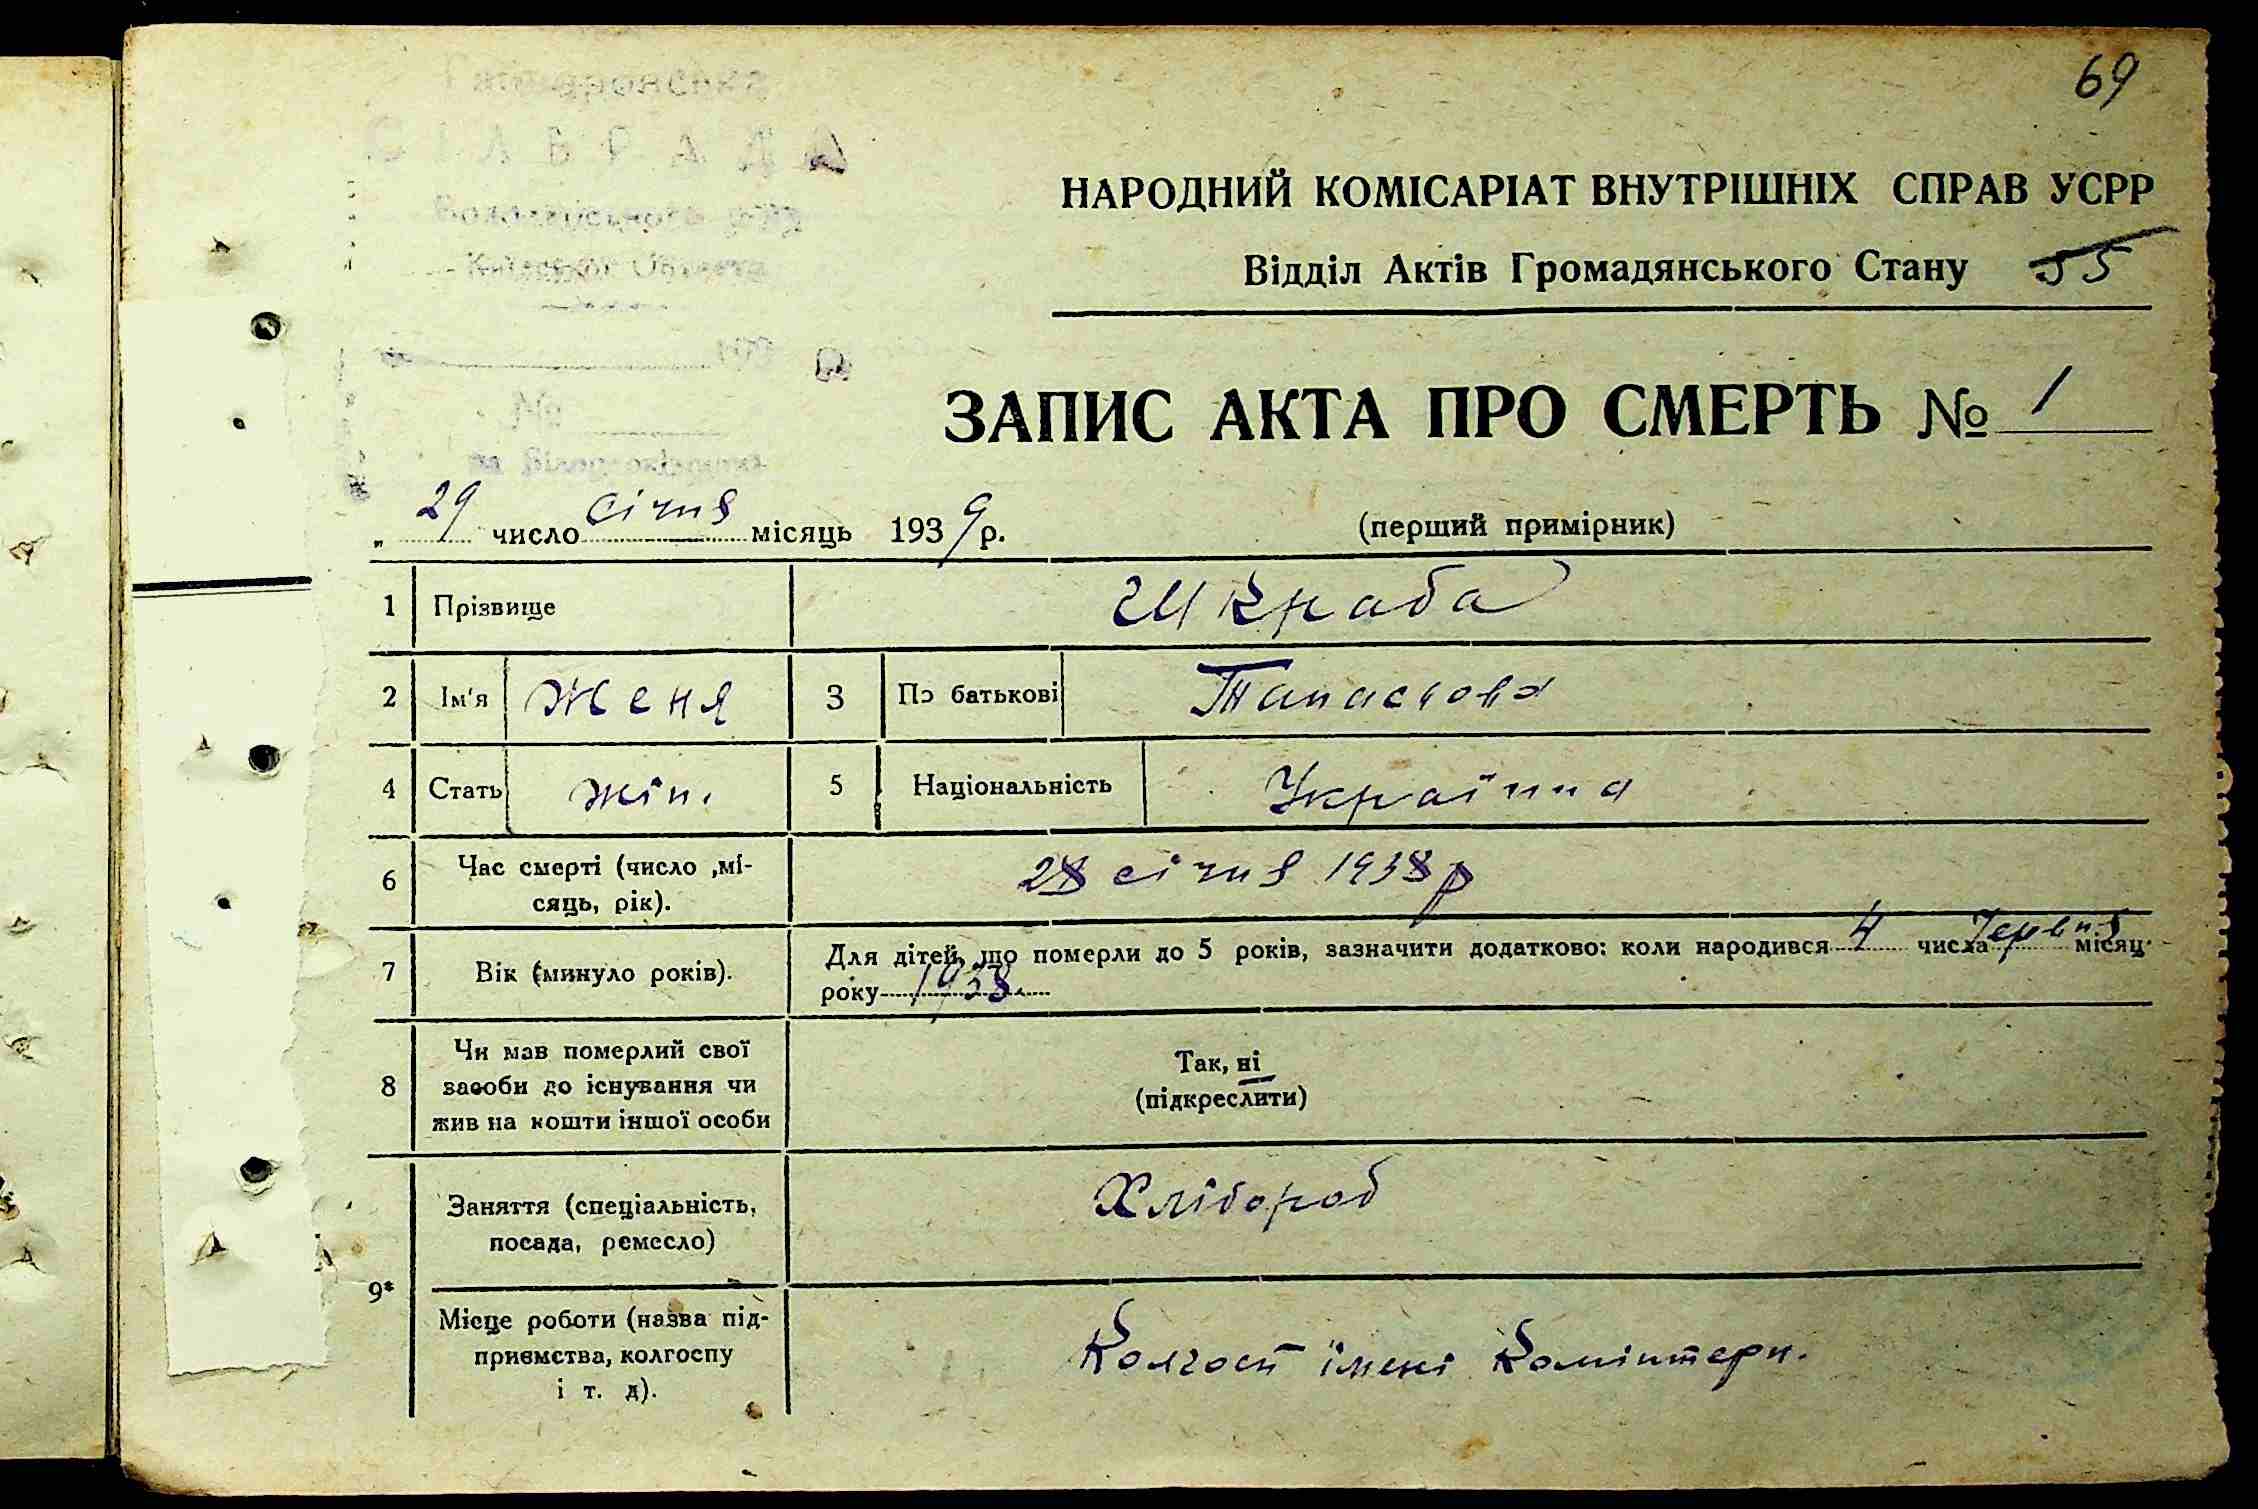 69
СІЛЬРАДА
Київської Області
НАРОДНИЙ КОМІСАРІАТ ВНУТРІШНІХ СПРАВ УСРР
Відділ Актів Громадянського Стану 55
ЗАПИС АКТА ПРО СМЕРТЬ № 1
„ 29 число січня місяць 1939 р. (перший примірник)
1 Прізвище Шкраба
2 Ім'я Женя 3 По батькові
4 Стать жін. 5 Національність Українка
6 Час смерті (число ,мі-
сяць, рік). 28 січня 1938 р
7 Вік (минуло років). Для дітей, що померли до 5 років, зазначити додатково: коли народився 4 числа Червня місяц.
року 1938.
8 Чи мав померлий свої
засоби до існування чи
жив на кошти іншої особи
Так, ні
(підкреслити)
9*
Заняття (спеціальність,
посада, ремесло) Хлібороб
Місце роботи (назва під-
приємства, колгоспу
і т. д). Колгосп імені Комінтерн.